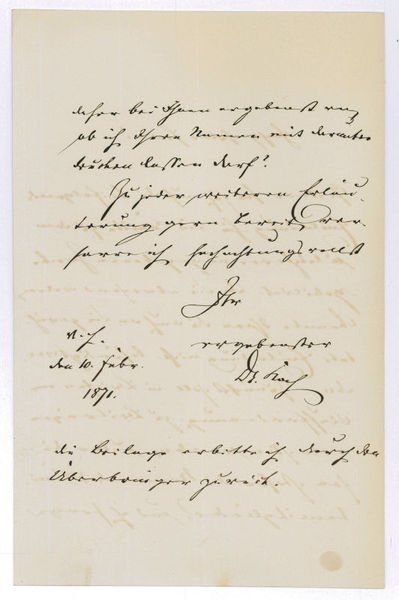 daher bei Ihnen ergebenst an,
ob ich Ihren Namen mit darunter
drucken lassen darf?
Zu jeder weiteren Erläu-
terung gern bereit, ver-
harre ich hochachtungsvollst
Ihr
ergebenster
v. H.
den 10. Febr.
Dr. Koch
1871.
die Beilage erbitte ich durch den
Überbringer zurück.